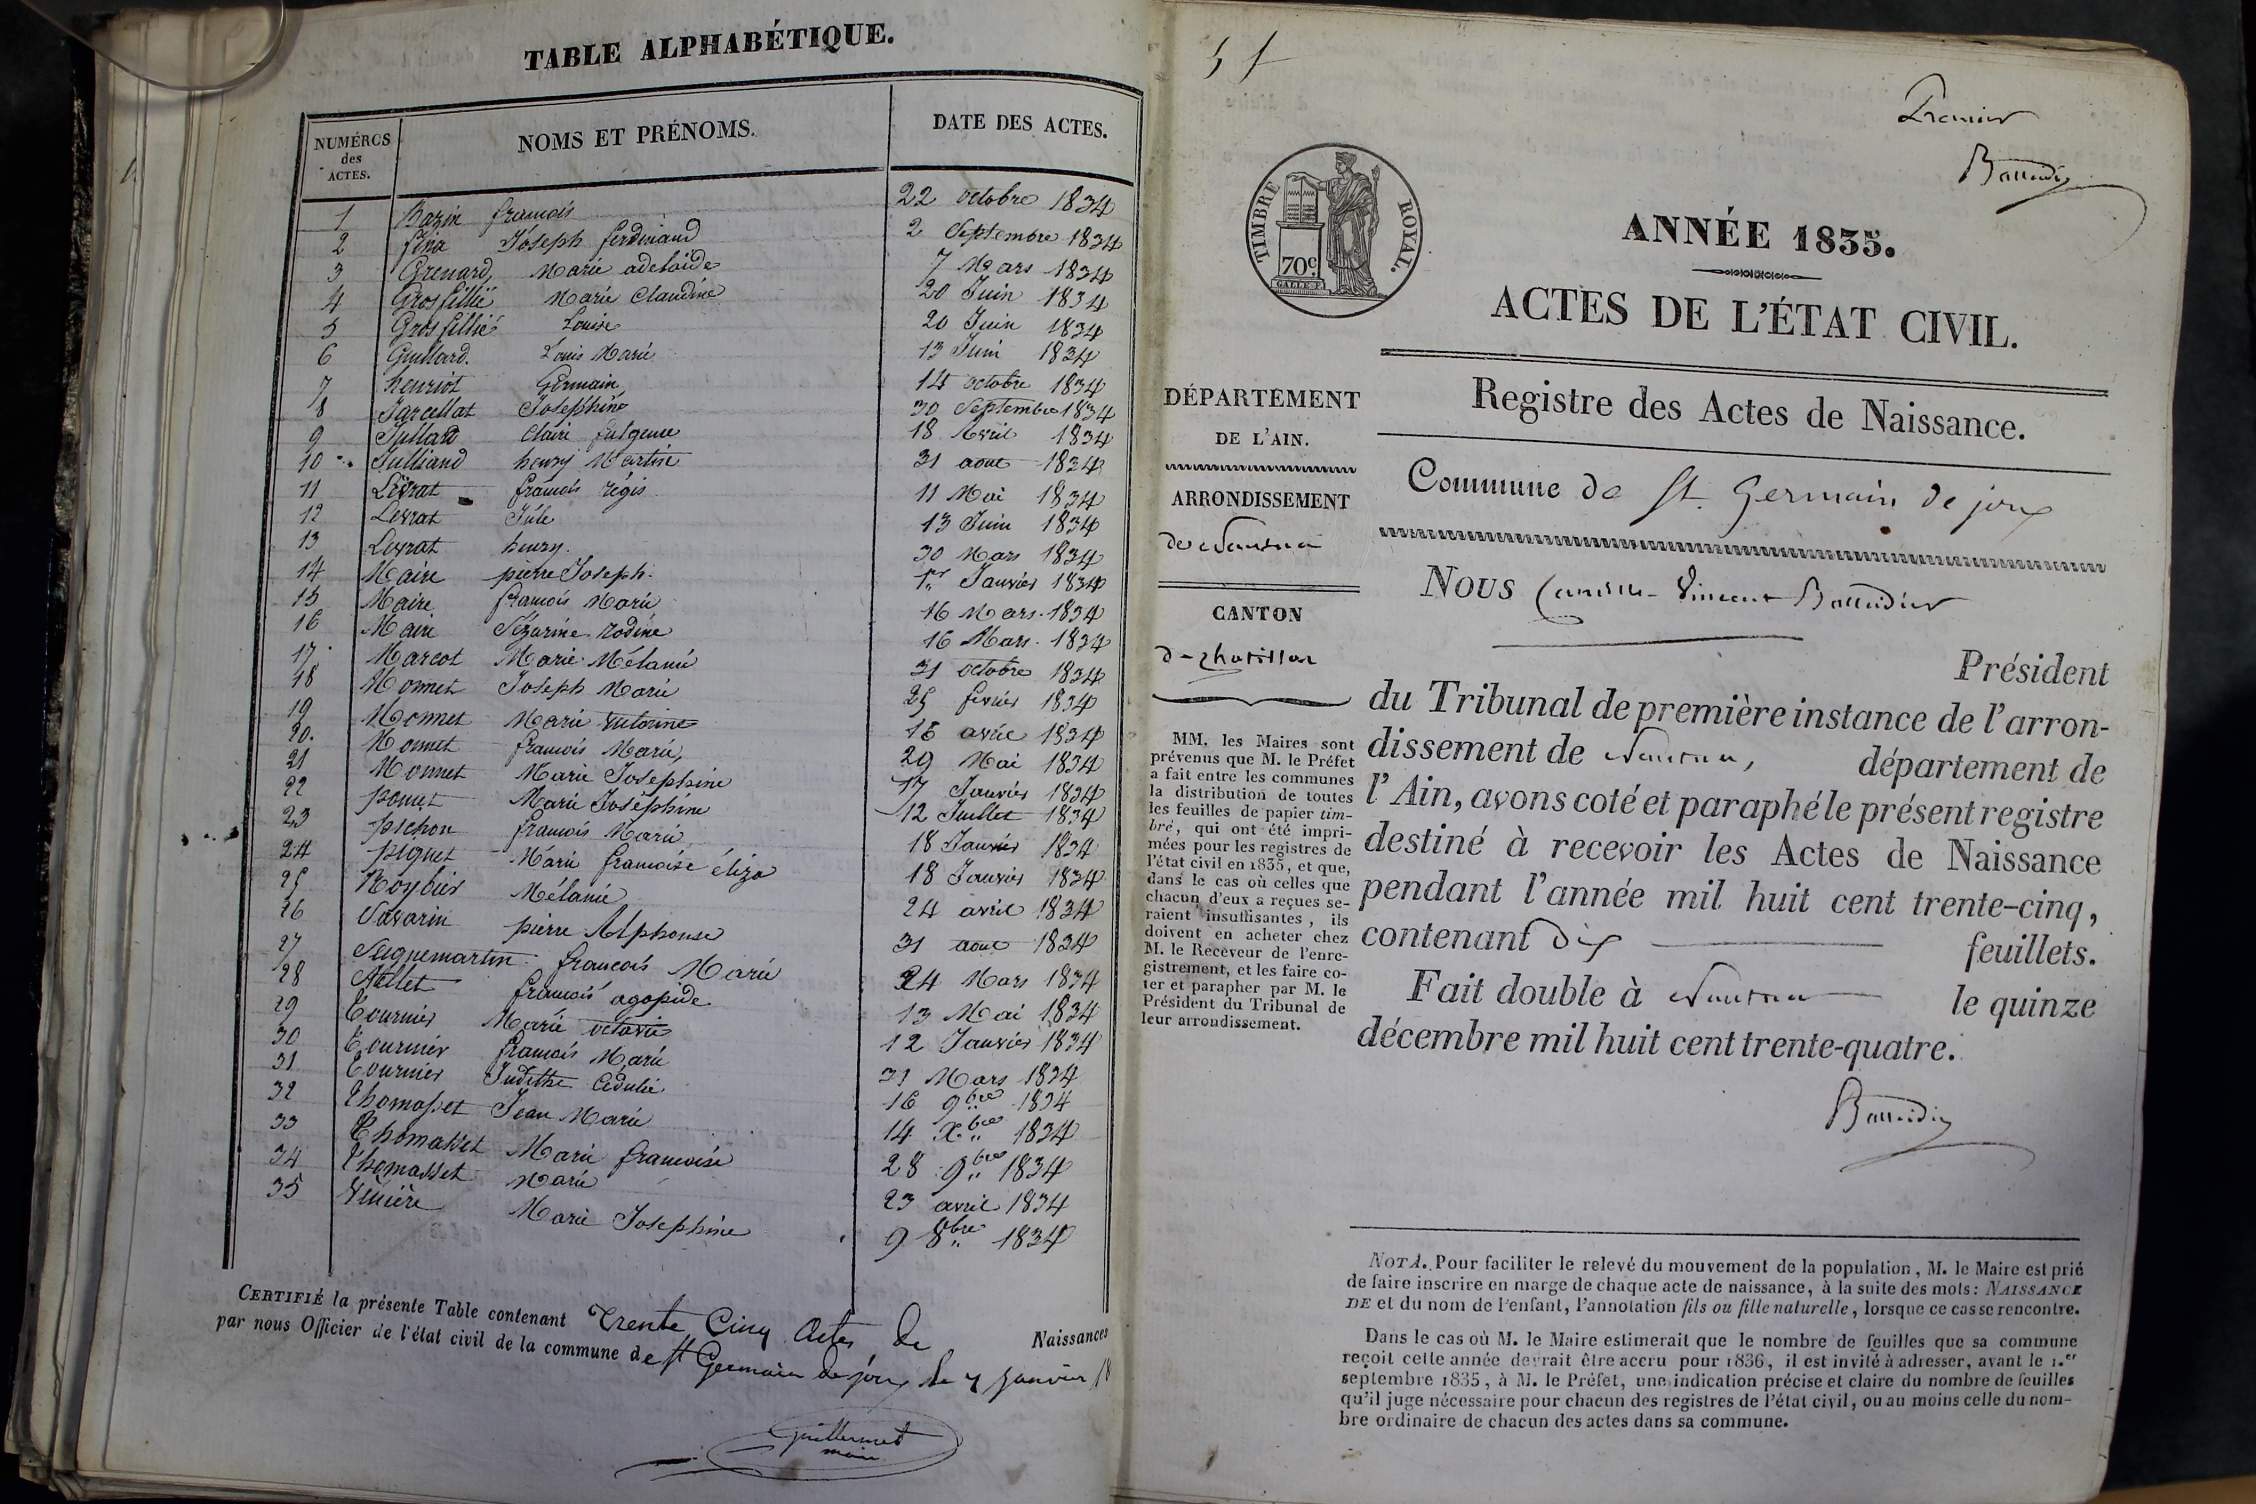 TABLE ALPHABÉTIQUE.
NUMÉROS des ACTES. NOMS ET PRÉNOMS. DATE DES ACTES.
1 Bazin françois 22 octobre 1834
2 fina Joseph ferdinand 2 Septembre 1834
3 Grenard, Marie adelaide 7 Mars 1834
4 Grosfillié Marie Claudine 20 Juin 1834
5 Grosfillié Louise 20 Juin 1834
6 Guillard. Louis Marie 13 Juin 1834
7 henriot Germain 14 octobre 1834
8 Jarcellat Joséphine 30 Septembre 1834
9 Jullard Claire fulgence 18 Avril 1834
10 Julliand henry Martin 31 aout 1834
11 Levrat françois régis 11 Mai 1834
12 Levrat Jule 13 Juin 1834
13 Levrat henry. 30 Mars 1834
14 Maire pierre Joseph. 1er Janvier 1834
15 Maire françois Marie 16 Mars. 1834
16 Maire Sézarine rodine 16 Mars. 1834
17 Marcot Marie Mélanie 31 octobre 1834
18 Monnet Joseph Marie 25 fevrier 1834
19 Monnet Marie victorine 16 avril 1834
20. Monnet françois Marie, 29 Mai 1834
21 Monnet Marie Josephine 17 Janvier 1834
22 ponçet Marie Joséphine 12 Juillet 1834
23 pichon françois Marie 18 Janvier 1834
24 piquet Marie françoise éliza 18 Janvier 1834
25 Roybier Mélanie 24 avril 1834
26 Savarin pierre Alphonse 31 aout 1834
27 Seignemartin françois Marie 24 Mars 1834
28 Tallet françois agapide 13 Mai 1834
29 Tournier Marie octavie 12 Janvier 1834
30 Tournier françois Marie 31 Mars 1834
31 Tournier Judithe Cédulie 16 9bre 1834
32 Thomasset Jean Marie 14 Xbre 1834
33 Thomasset Marie françoise 28 9bre 1834
34 Thomasset Marie 23 avril 1834
35 Vinière Marie Josephine 9 8bre 1834
CERTIFIÉ la présente Table contenant Trente Cinq actes de Naissances
par nous Officier de l'état civil de la commune de St Germain de joux le 7 janvier 18
Guillermet
maire
51
Premier
Ballaidier
TIMBRE ROYAL.
70c.
ANNÉE 1835.
ACTES DE L'ÉTAT CIVIL.
DÉPARTEMENT
DE L'AIN.
ARRONDISSEMENT
de Nantua
CANTON
de Chatillon
MM. les Maires sont
prévenus que M. le Préfet
a fait entre les communes
la distribution de toutes
les feuilles de papier tim-
bré, qui ont été impri-
mées pour les registres de
l'état civil en 1835, et que,
dans le cas où celles que
chacun d'eux a reçues se-
raient insuffisantes, ils
doivent en acheter chez
M. le Receveur de l'enre-
gistrement, et les faire co-
ter et parapher par M. le
Président du Tribunal de
leur arrondissement.
Registre des Actes de Naissance.
Commune de St. Germain de joux
NOUS Camille-Vincent Ballaidier
Président
du Tribunal de première instance de l'arron-
dissement de Nantua, département de
l'Ain, avons coté et paraphé le présent registre
destiné à recevoir les Actes de Naissance
pendant l'année mil huit cent trente-cinq,
contenant dix feuillets.
Fait double à Nantua le quinze
décembre mil huit cent trente-quatre.
Ballaidier
NOTA. Pour faciliter le relevé du mouvement de la population, M. le Maire est prié
de faire inscrire en marge de chaque acte de naissance, à la suite des mots: NAISSANCE
DE et du nom de l'enfant, l'annotation fils ou fille naturelle, lorsque ce cas se rencontre.
Dans le cas où M. le Maire estimerait que le nombre de feuilles que sa commune
reçoit cette année devrait être accru pour 1836, il est invité à adresser, avant le 1.er
septembre 1835, à M. le Préfet, une indication précise et claire du nombre de feuilles
qu'il juge nécessaire pour chacun des registres de l'état civil, ou au moins celle du nom-
bre ordinaire de chacun des actes dans sa commune.